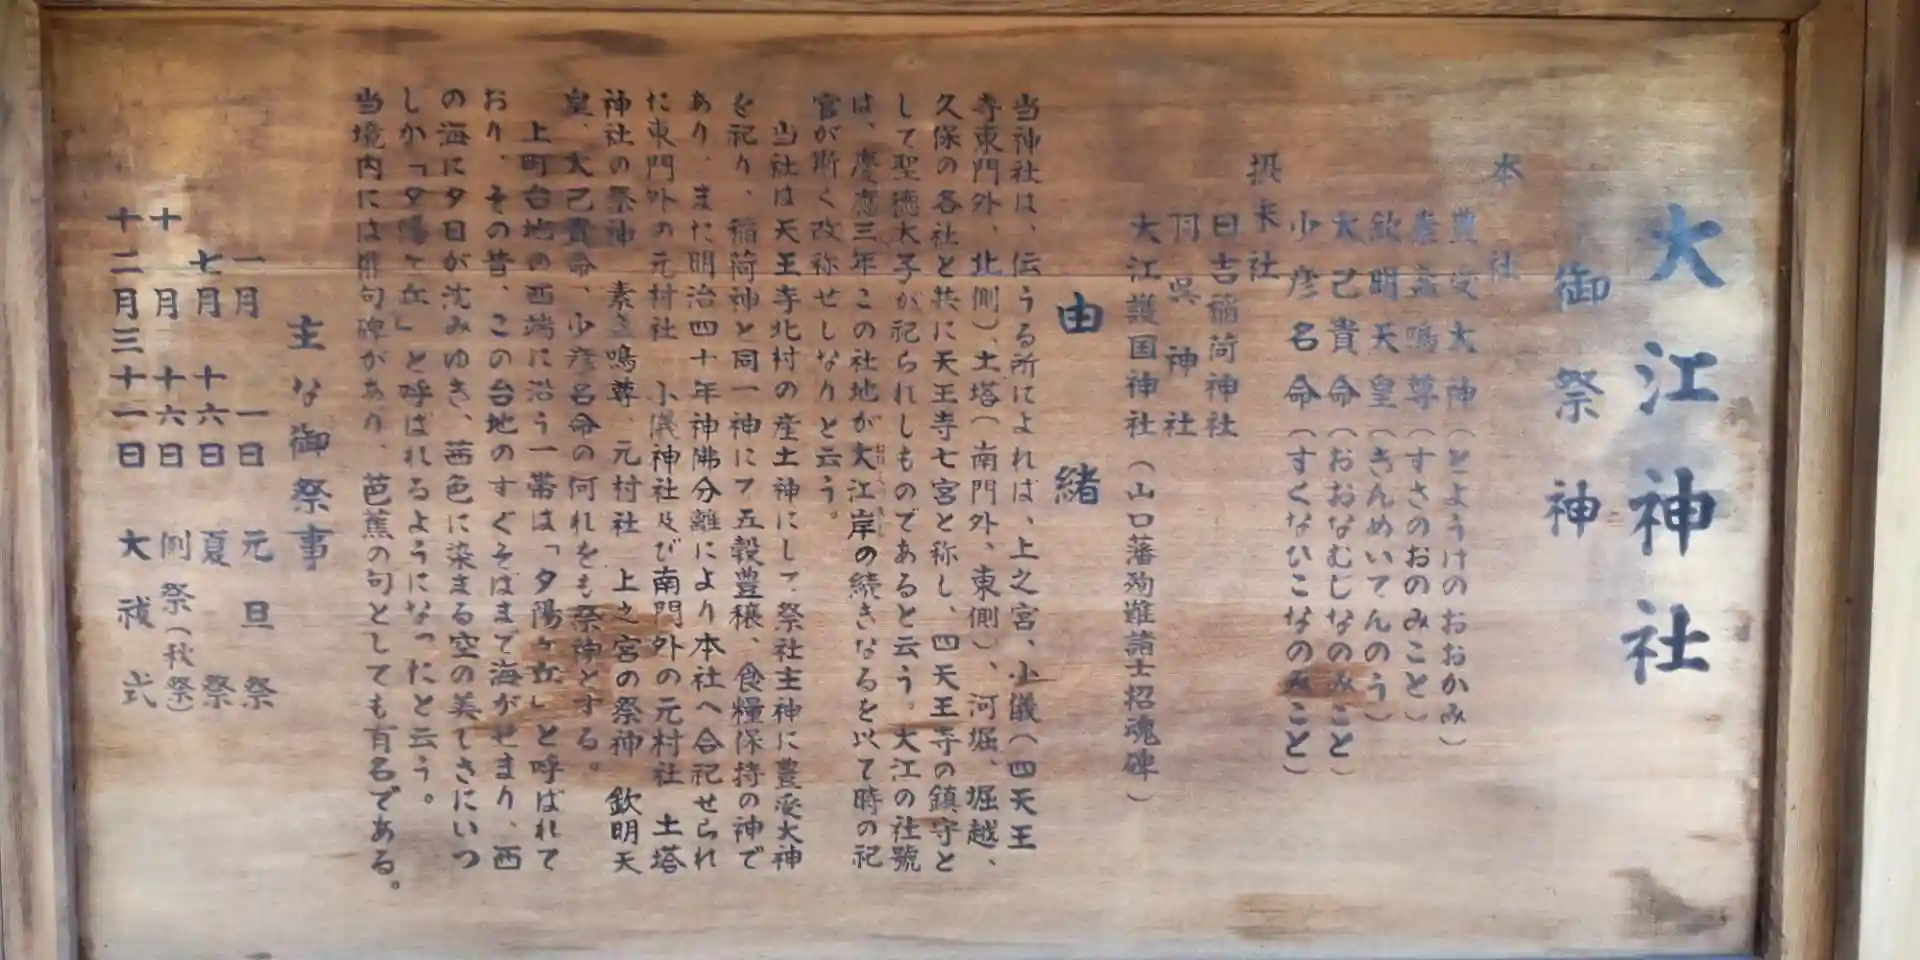 大江神社
御祭神
本社
豊受大神（とようけのおおかみ）
素盞鳴尊（すさのおのみこと）
欽明天皇（きんめいてんのう）
大己貴命（おおなむじなのみこと）
少彦名命（すくなひこなのみこと）
摂末社
日吉稲荷神社
羽呉神社
大江護国神社（山口藩殉難諸士招魂碑）
由緒
当神社は、伝うる所によれば、上之宮、小儀（四天王
寺東門外、北側）、土塔（南門外、東側）、河堀、堀越、
久保の各社と共に天王寺七宮と称し、四天王寺の鎮守と
して聖徳太子が祀られしものであると云う。大江の社號
は、慶應三年この社地が大江岸の続きなるを以て時の祀
官が斯く改称せしなりと云う。
当社は天王寺北村の産土神にして、祭社主神に豊受大神
を祀り、稲荷神と同一神にて五穀豊穣、食糧保持の神で
あり、また明治四十年神佛分離により本社へ合祀せられ
た東門外の元村社　小儀神社及び南門外の元村社　土塔
神社の祭神　素盞鳴尊、元村社　上之宮の祭神　欽明天
皇、大己貴命、少彦名命の何れをも祭神とする。
上町台地の西端に沿う一帯は「夕陽ヶ丘」と呼ばれて
おり、その昔、この台地のすぐそばまで海がせまり、西
の海に夕日が沈みゆき、茜色に染まる空の美しさにいつ
しか「夕陽ヶ丘」と呼ばれるようになったと云う。
当境内には俳句碑があり、芭蕉の句としても有名である。
主な御祭事
一月　一日　元旦祭
七月　十六日　夏祭
十月　十六日　例祭（秋祭）
十二月三十一日　大祓式